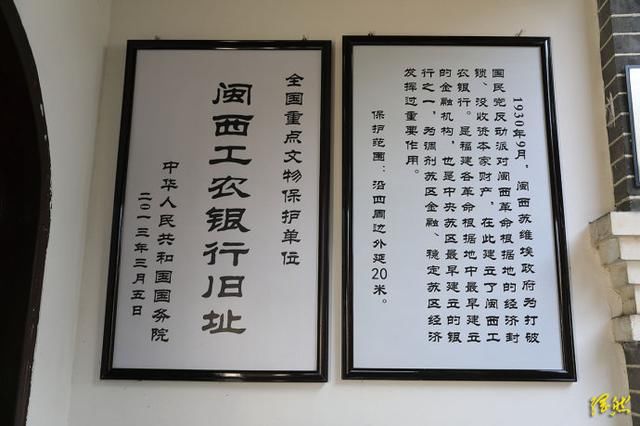 全国重点文物保护单位
闽西工农银行旧址
中华人民共和国国务院
二〇一三年三月五日
1930年9月，闽西苏维埃政府为打破
国民党反动派对闽西革命根据地的经济封
锁、没收资本家财产，在此建立了闽西工
农银行。是福建各革命根据地中最早建立
的金融机构，也是中央苏区最早建立的银
行之一，为调剂苏区金融、稳定苏区经济
发挥过重要作用。
保护范围：沿四周边外延20米。